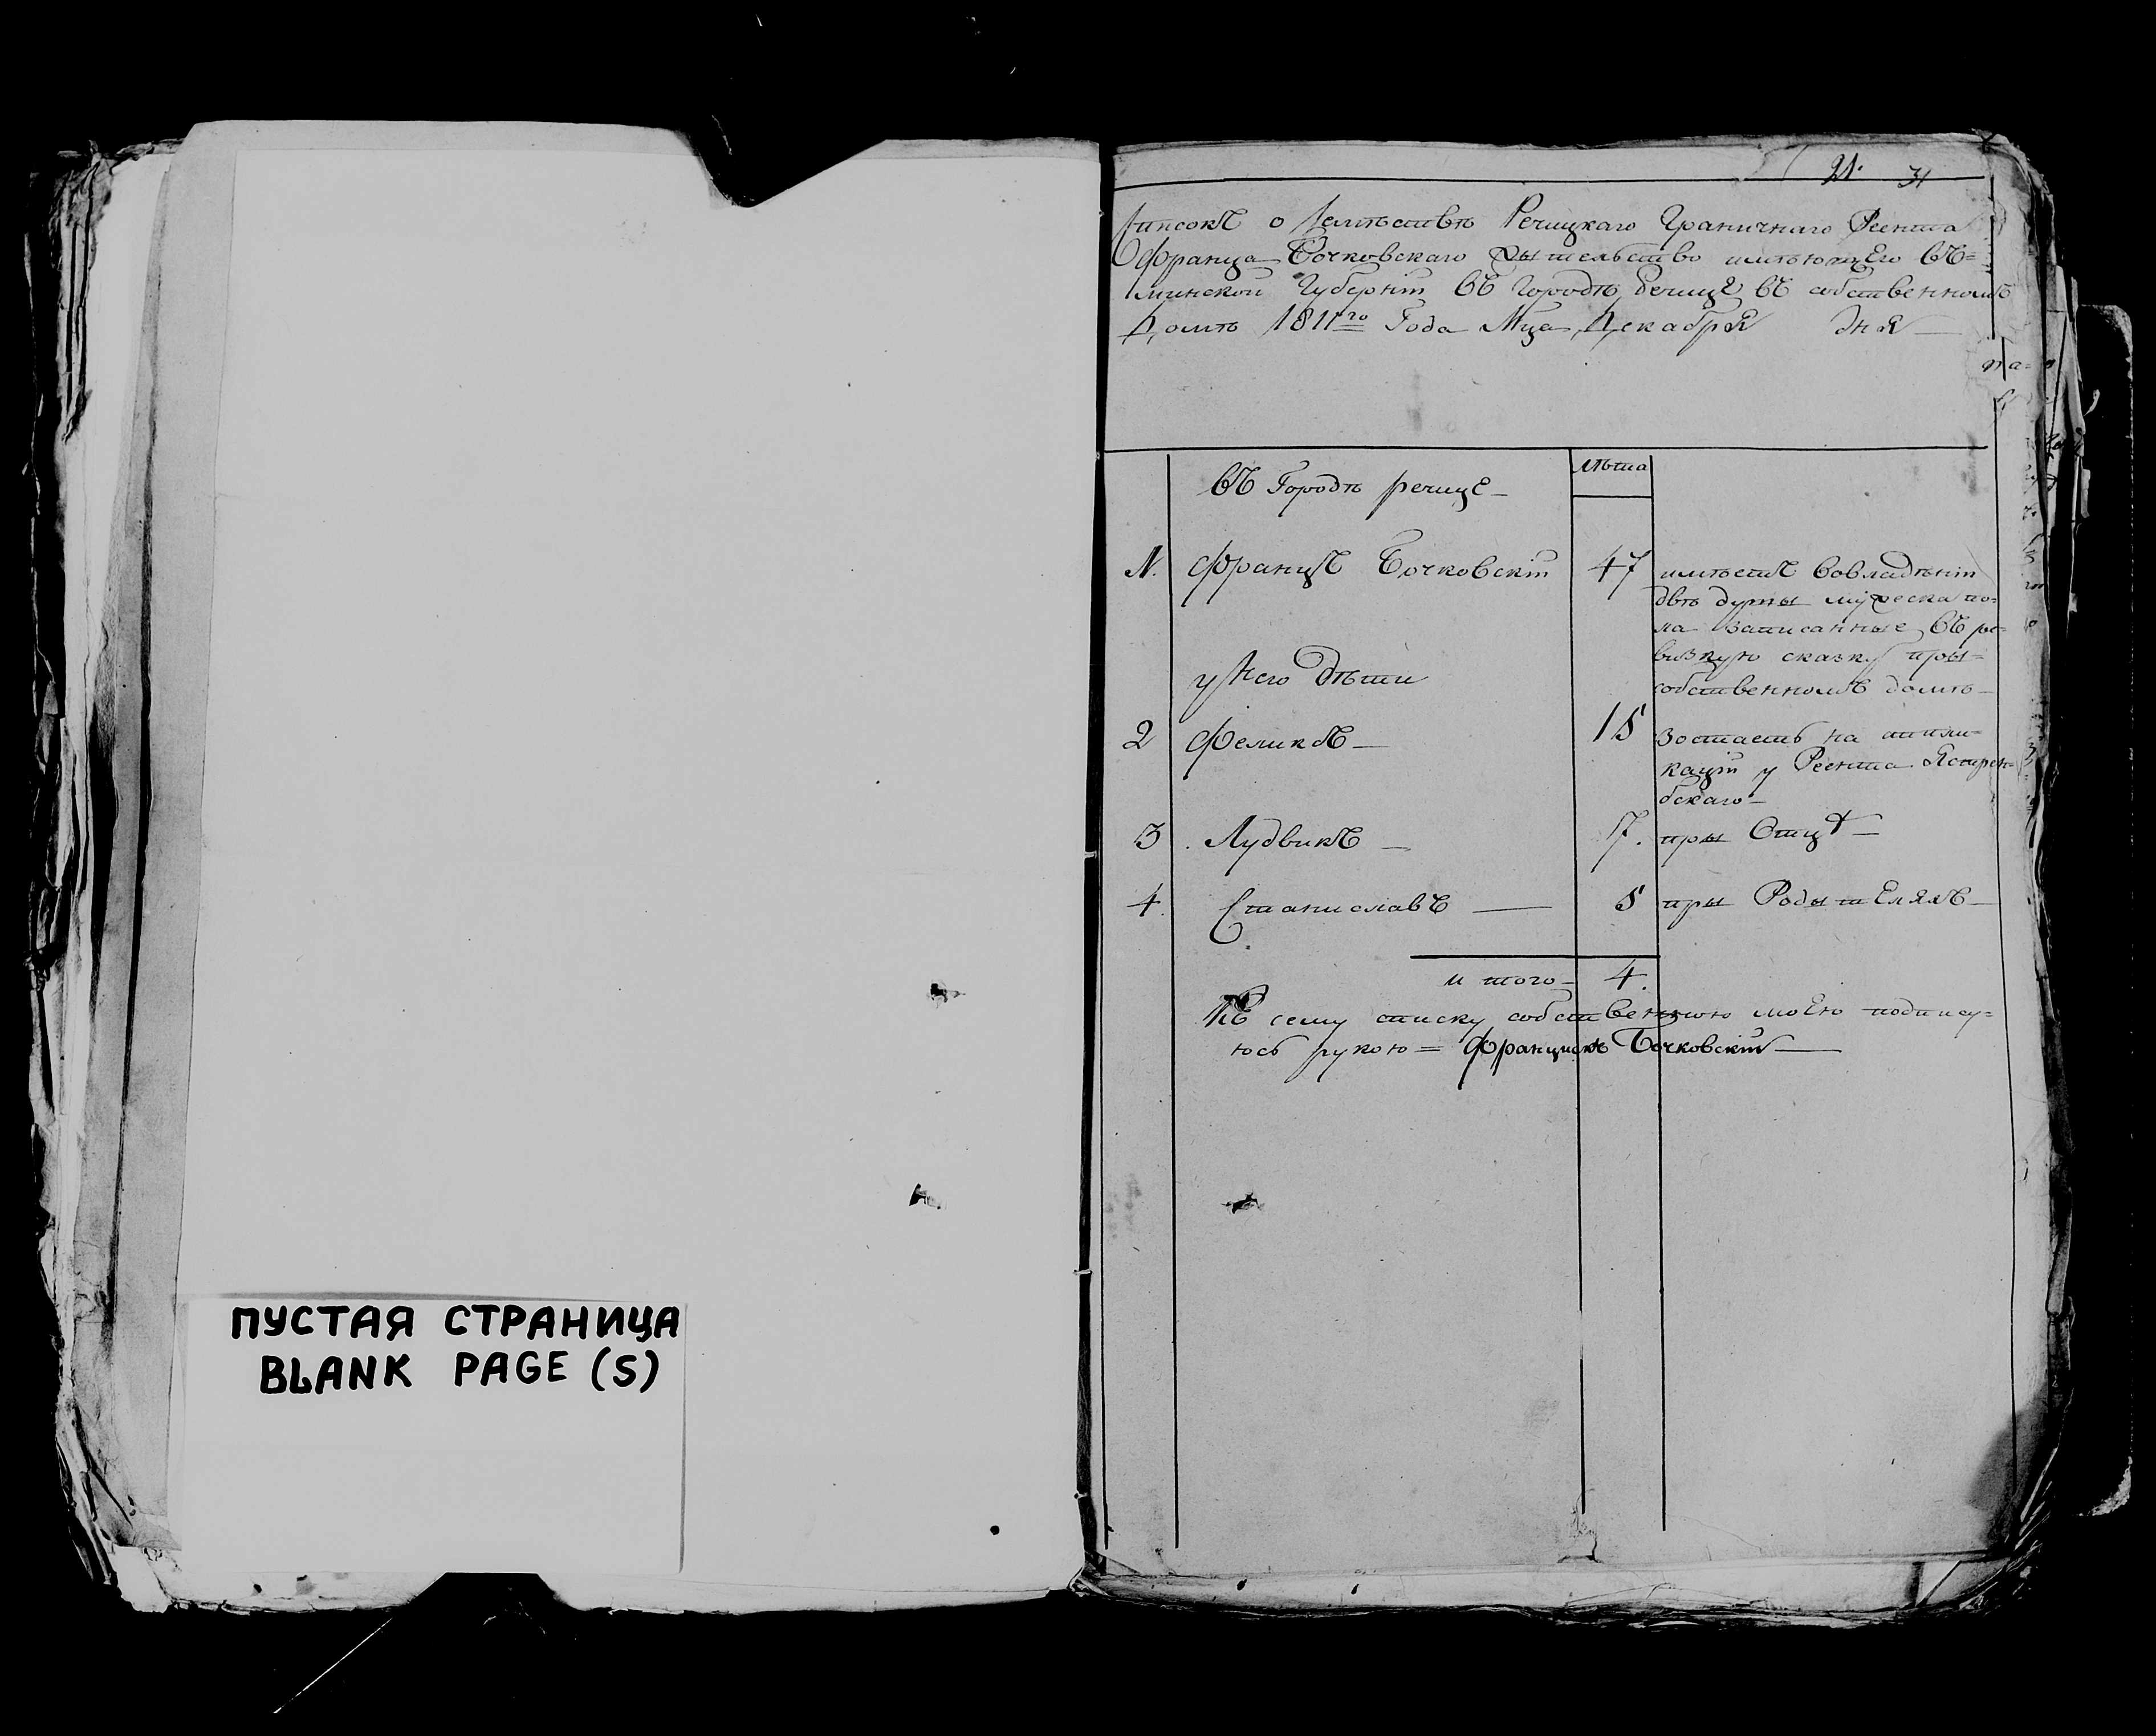 21. 31
Списокъ о семѣствѣ Речицкаго Граничнаго Реента
Франца Бочковскаго жытельство имѣющего въ=
минской Губерніи въ Городѣ речице въ собственномъ
Домѣ 1811го Года Мца Декабря дня
въ Городѣ речице
лѣта
N. Францъ Бочковскій 47 имѣетъ вовладѣніи
двѣ душы мужеска по=
ла записанные въ ре=
визкую сказку пры=
собственномъ домѣ
у него дѣти
2 Феликсъ 15 зостаетъ на аппли=
кацій у Реента Ястрен=
бскаго
3 Лудвикъ 7. пры Отцѣ
4. Станиславъ 5 пры Родытеляхъ
и того 4.
Къ сему списку собственною моею подпису=
юсь рукою = Францискъ Бочковскій
ПУСТАЯ СТРАНИЦА
BLANK PAGE (S)